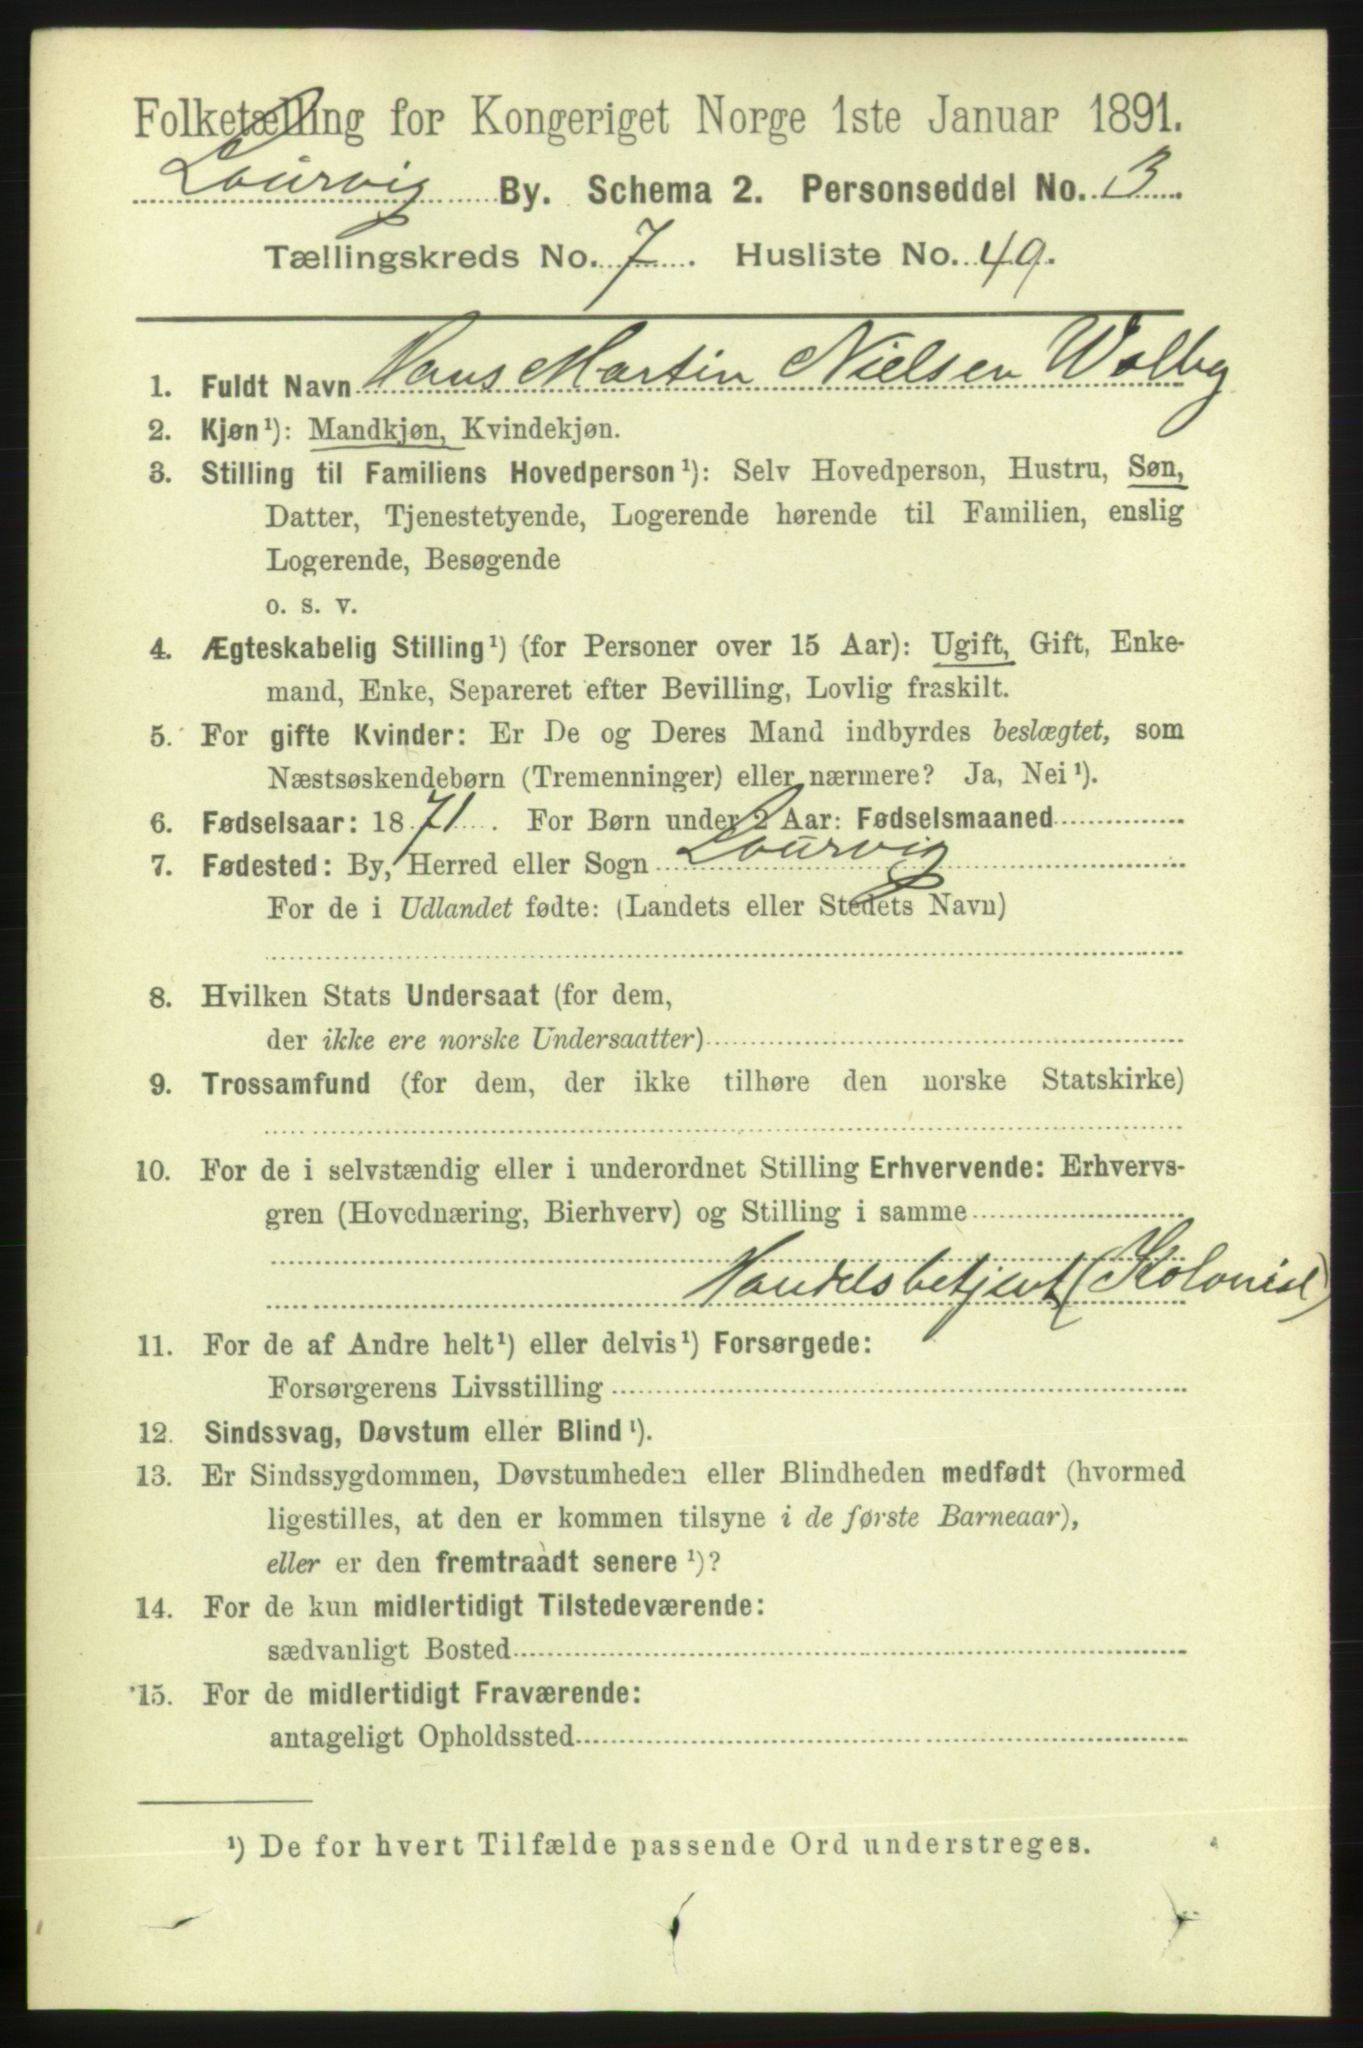 Folketælling for Kongeriget Norge 1ste Januar 1891.
Laurvig By. Schema 2. Personseddel No. 3.
Tællingskreds No. 7. Husliste No. 49.
1. Fuldt Navn Hans Martin Nielsen Wolby
2. Kjøn¹): Mandkjøn, Kvindekjøn.
3. Stilling til Familiens Hovedperson¹): Selv Hovedperson, Hustru, Søn,
Datter, Tjenestetyende, Logerende hørende til Familien, enslig
Logerende, Besøgende
o. s. v.
4. Ægteskabelig Stilling¹) (for Personer over 15 Aar): Ugift, Gift, Enke-
mand, Enke, Separeret efter Bevilling, Lovlig fraskilt.
5. For gifte Kvinder: Er De og Deres Mand indbyrdes beslægtet, som
Næstsøskendebørn (Tremenninger) eller nærmere? Ja, Nei¹).
6. Fødselsaar: 1871. For Børn under 2 Aar: Fødselsmaaned
7. Fødested: By, Herred eller Sogn Laurvig
For de i Udlandet fødte: (Landets eller Stedets Navn)
8. Hvilken Stats Undersaat (for dem,
der ikke ere norske Undersaatter)
9. Trossamfund (for dem, der ikke tilhøre den norske Statskirke)
10. For de i selvstændig eller i underordnet Stilling Erhvervende: Erhvervs-
gren (Hovednæring, Bierhverv) og Stilling i samme
Handelsbetjent (Kolonial)
11. For de af Andre helt¹) eller delvis¹) Forsørgede:
Forsørgerens Livsstilling
12. Sindssvag, Døvstum eller Blind¹).
13. Er Sindssygdommen, Døvstumheden eller Blindheden medfødt (hvormed
ligestilles, at den er kommen tilsyne i de første Barneaar),
eller er den fremtraadt senere¹)?
14. For de kun midlertidigt Tilstedeværende:
sædvanligt Bosted
15. For de midlertidigt Fraværende:
antageligt Opholdssted
¹) De for hvert Tilfælde passende Ord understreges.